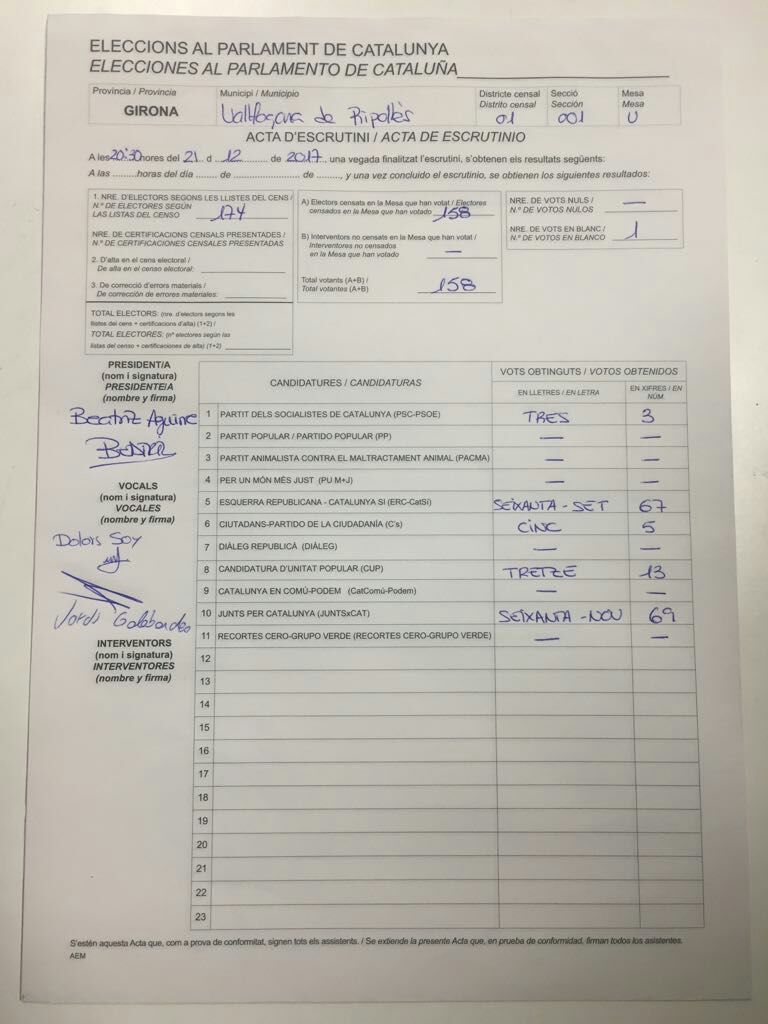 ELECCIONS AL PARLAMENT DE CATALUNYA
ELECCIONES AL PARLAMENTO DE CATALUÑA
Província / Provincia Municipi / Municipio Districte censal Secció Mesa
Distrito censal Sección Mesa
GIRONA Vallfogona de Ripollès 01 001 U
ACTA D'ESCRUTINI / ACTA DE ESCRUTINIO
A les 20:30 hores del 21 d 12 de 2017, una vegada finalitzat l'escrutini, s'obtenen els resultats següents:
A las .........horas del día ....... de ................. de ........., y una vez concluido el escrutinio, se obtienen los siguientes resultados:
1. NRE. D'ELECTORS SEGONS LES LLISTES DEL CENS /
N.º DE ELECTORES SEGÚN
LAS LISTAS DEL CENSO 174
NRE. DE CERTIFICACIONS CENSALS PRESENTADES /
N.º DE CERTIFICACIONES CENSALES PRESENTADAS
2. D'alta en el cens electoral /
De alta en el censo electoral:
3. De correcció d'errors materials /
De corrección de errores materiales:
TOTAL ELECTORS: (nre. d'electors segons les
llistes del cens + certificacions d'alta) (1+2) /
TOTAL ELECTORES: (nº electores según las
listas del censo + certificaciones de alta) (1+2)
A) Electors censats en la Mesa que han votat / Electores
censados en la Mesa que han votado 158
B) Interventors no censats en la Mesa que han votat /
Interventores no censados
en la Mesa que han votado —
Total votants (A+B) /
Total votantes (A+B) 158
NRE. DE VOTS NULS /
N.º DE VOTOS NULOS —
NRE. DE VOTS EN BLANC /
N.º DE VOTOS EN BLANCO 1
PRESIDENT/A
(nom i signatura)
PRESIDENTE/A
(nombre y firma)
Beatriz Aguirre
VOCALS
(nom i signatura)
VOCALES
(nombre y firma)
Dolors Soy
Jordi
INTERVENTORS
(nom i signatura)
INTERVENTORES
(nombre y firma)
CANDIDATURES / CANDIDATURAS VOTS OBTINGUTS / VOTOS OBTENIDOS
EN LLETRES / EN LETRA EN XIFRES / EN NÚM.
1 PARTIT DELS SOCIALISTES DE CATALUNYA (PSC-PSOE) TRES 3
2 PARTIT POPULAR / PARTIDO POPULAR (PP) — —
3 PARTIT ANIMALISTA CONTRA EL MALTRACTAMENT ANIMAL (PACMA) — —
4 PER UN MÓN MÉS JUST (PU M+J) — —
5 ESQUERRA REPUBLICANA - CATALUNYA SÍ (ERC-CatSí) SEIXANTA - SET 67
6 CIUTADANS-PARTIDO DE LA CIUDADANÍA (C's) CINC 5
7 DIÀLEG REPUBLICÀ (DIÀLEG) — —
8 CANDIDATURA D'UNITAT POPULAR (CUP) TRETZE 13
9 CATALUNYA EN COMÚ-PODEM (CatComú-Podem) — —
10 JUNTS PER CATALUNYA (JUNTSxCAT) SEIXANTA - NOU 69
11 RECORTES CERO-GRUPO VERDE (RECORTES CERO-GRUPO VERDE) — —
12
13
14
15
16
17
18
19
20
21
22
23
S'estén aquesta Acta que, com a prova de conformitat, signen tots els assistents. / Se extiende la presente Acta que, en prueba de conformidad, firman todos los asistentes.
AEM